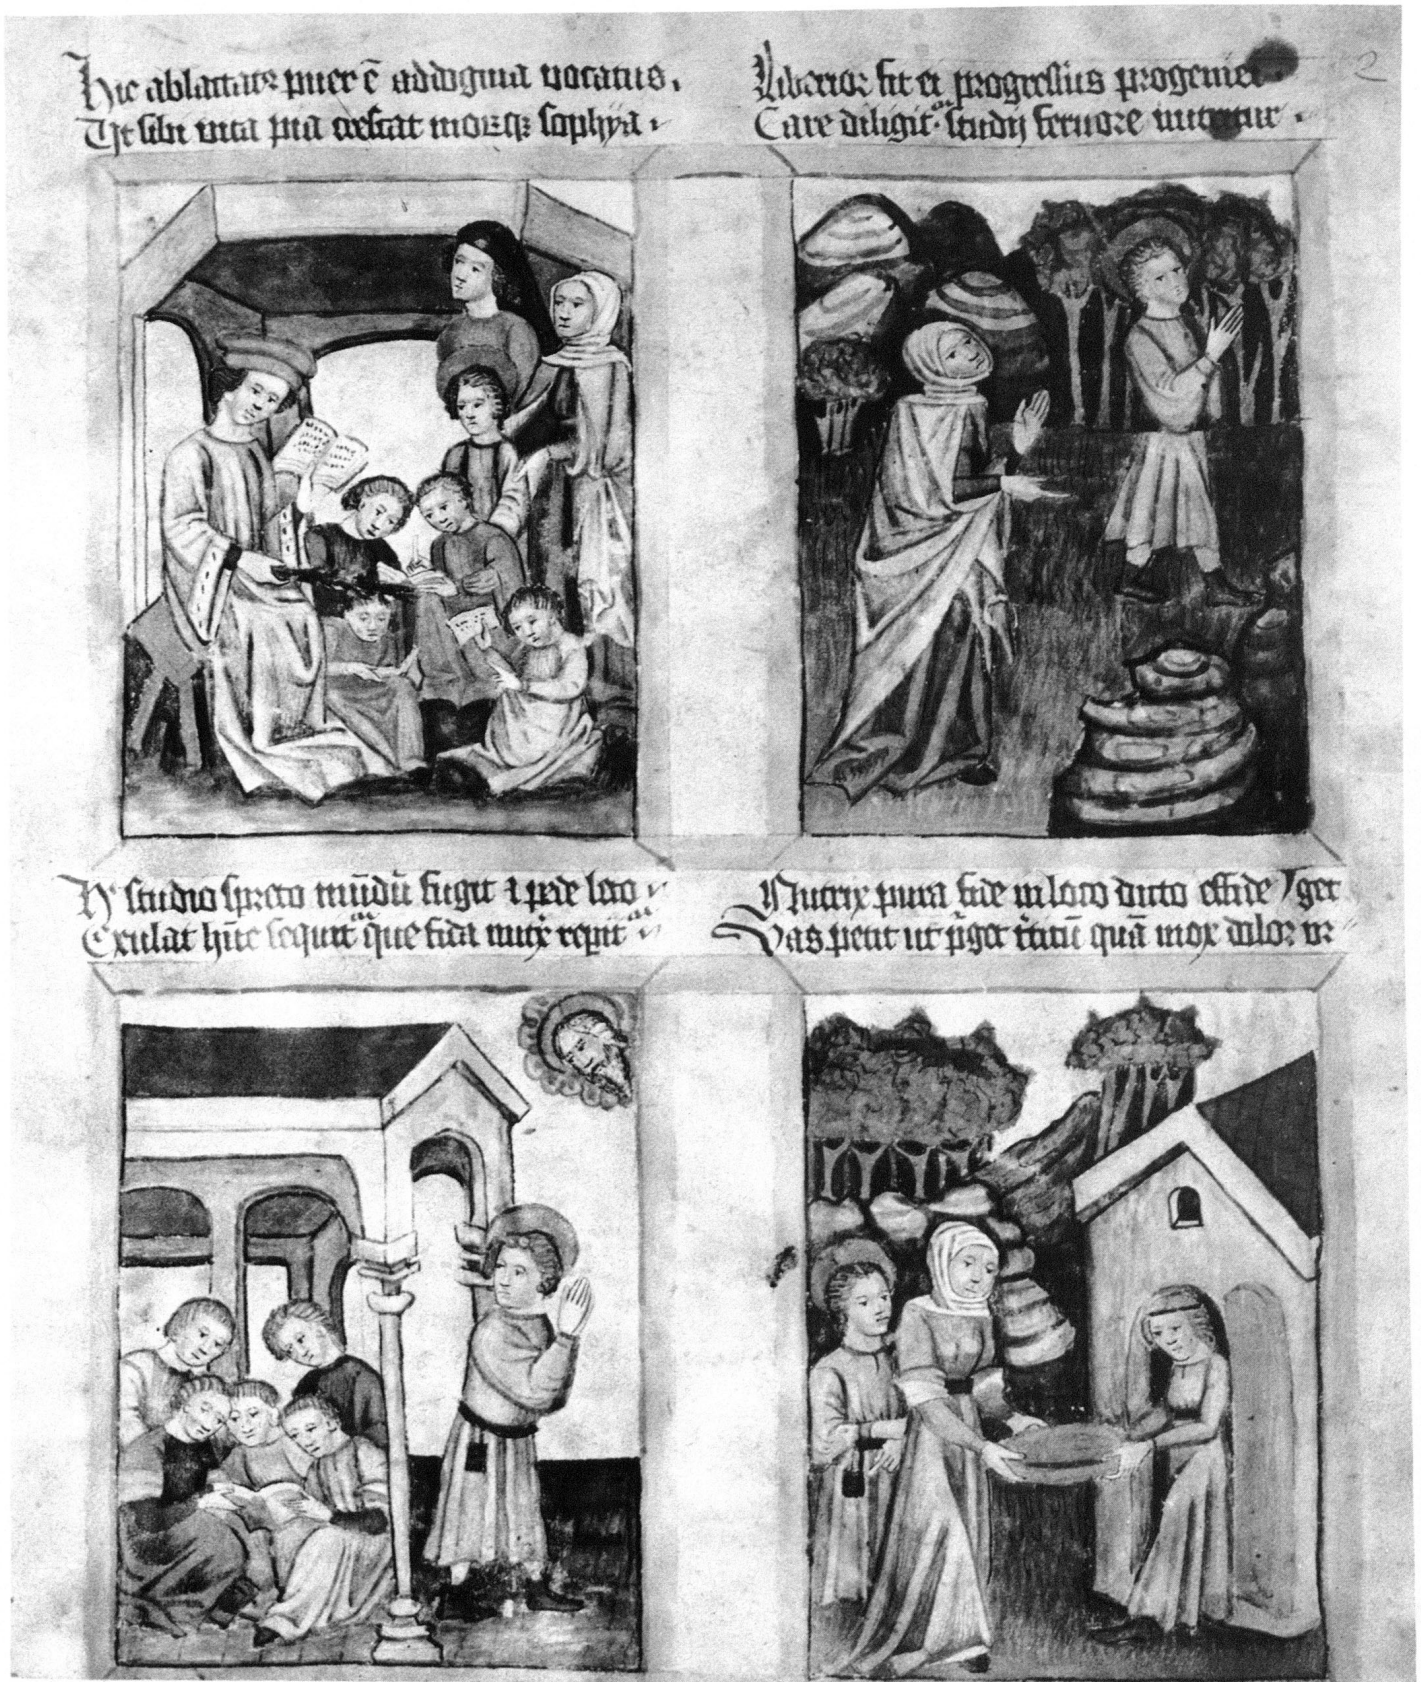 Hic ablactatꝰ puer ē ad dogma vocatus.
Ut sibi vita pia crescat morꝫqꝫ sophya
Liberior fit ei progressus progeniei
Care diligitᵘʳ studij fervore nutritur
studio spreto mūdū fugit ⁊ pede leto
Exulat hūc sequitᵘʳ que fida nutͥx
Nutrix pura fide in loco ducto effide
Vas petit ut quā mox
2